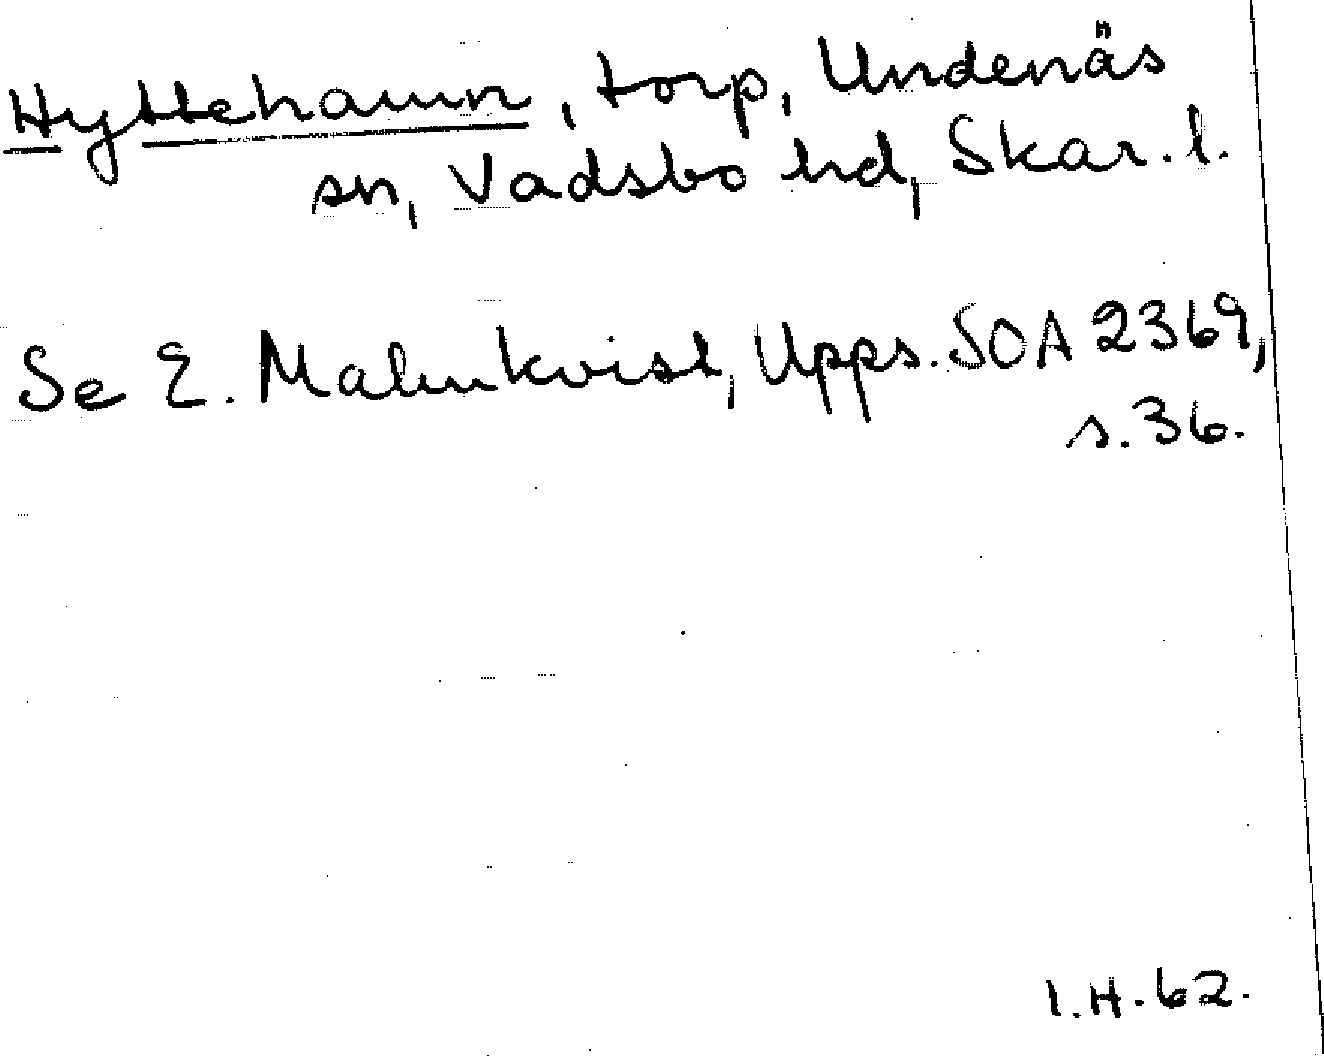 Hyttehamn, torp, Undenäs
sn, Vadsbo hd, Skar. l.
Se E. Malmkvist, Upps. SOA 2369,
s. 36.
I.H. 62.